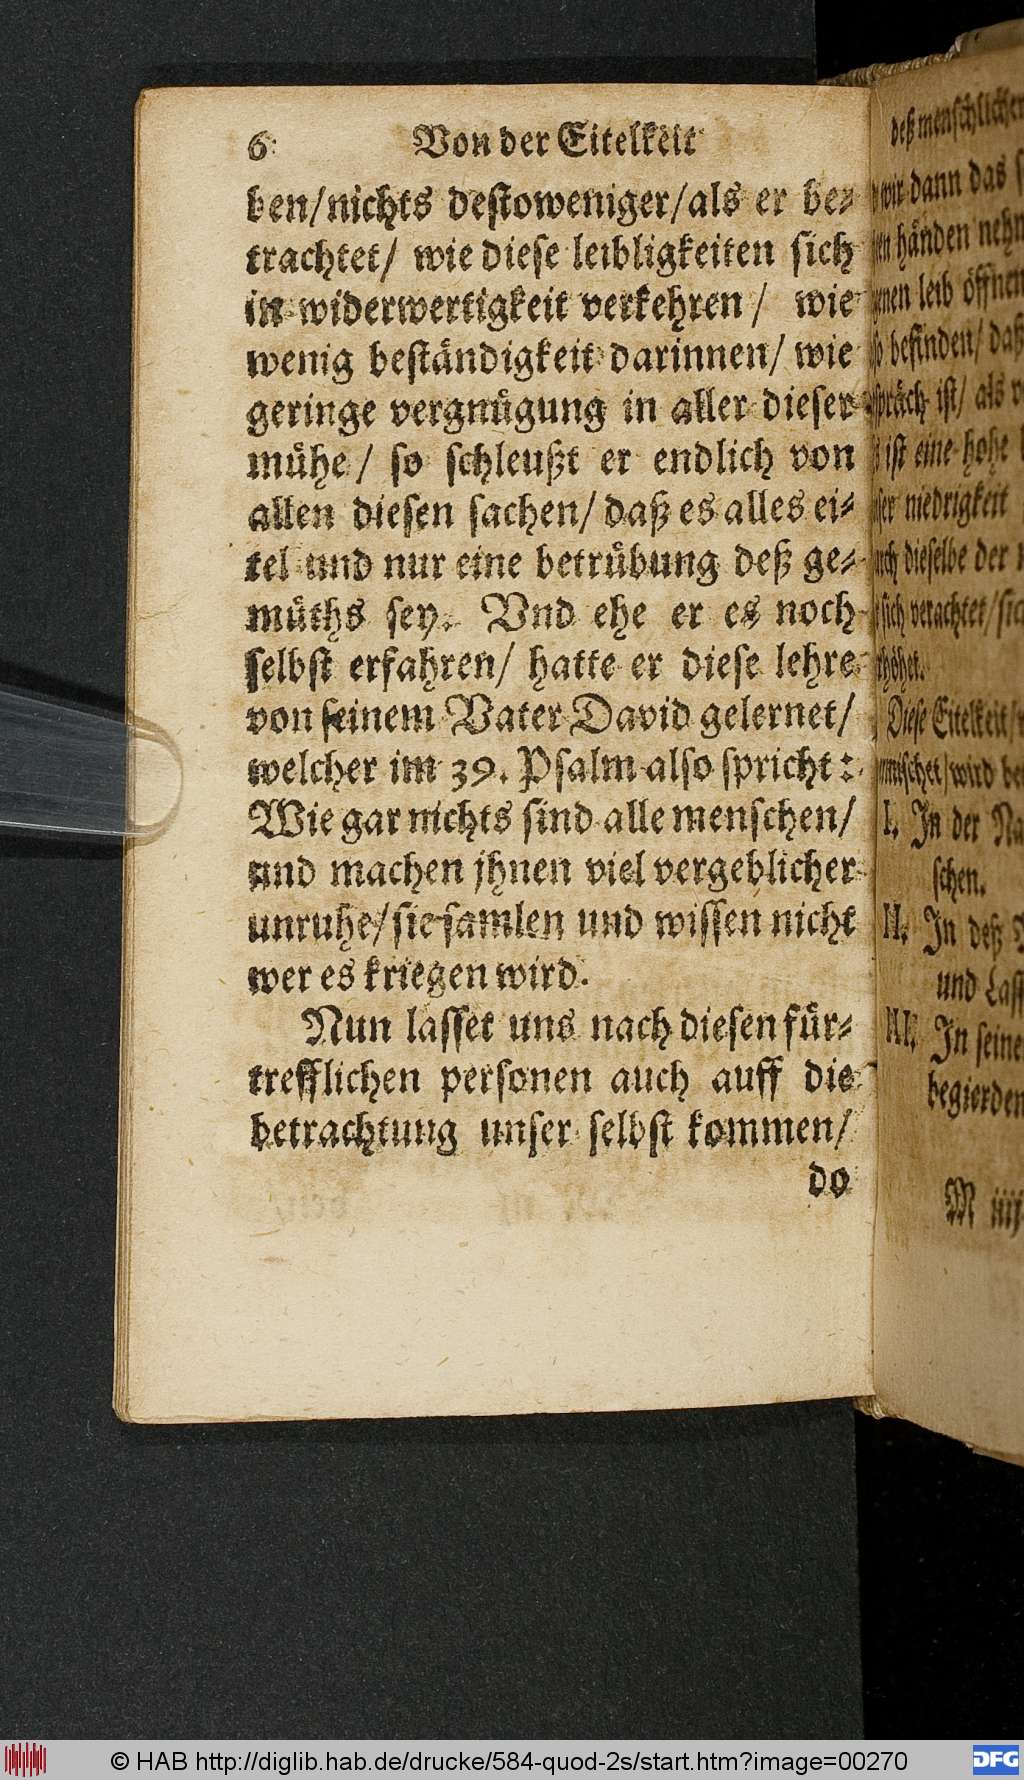 6 Von der Eitelkeit
ben/nichts destoweniger/als er be-
trachtet/ wie diese leibligkeiten sich
in widerwertigkeit verkehren / wie
wenig beständigkeit darinnen/ wie
geringe vergnügung in aller dieser
mühe / so schleußt er endlich von
allen diesen sachen/ daß es alles ei-
tel und nur eine betrübung deß ge-
müths sey. Vnd ehe er es noch
selbst erfahren/ hatte er diese lehre
von seinem Vater David gelernet/
welcher im 39. Psalm also spricht:
Wie gar nichts sind alle menschen/
und machen jhnen viel vergeblicher
unruhe/sie samlen und wissen nicht
wer es kriegen wird.
Nun lasset uns nach diesen für-
trefflichen personen auch auff die
betrachtung unser selbst kommen/
do
deß menschlichen
wir dann das
händen
leib öffnen
befinden/ daß
ist/ als
ist eine hohe
niedrigkeit
dieselbe der
sich verachtet/
Diese Eitelkeit/
wird
I. In der
schen.
II. In deß
und Last
III. In seine
begierden
M iiij
© HAB http://diglib.hab.de/drucke/584-quod-2s/start.htm?image=00270
DFG